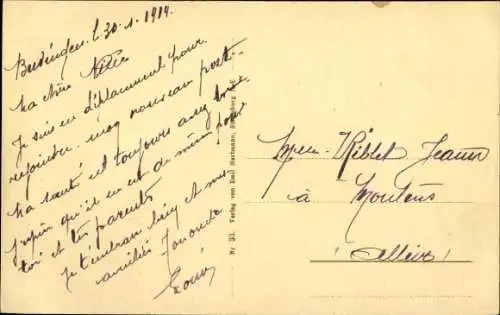 l. 30.1.1919.
Ma chère
Je suis en déplacement pour
rejoindre mon nouveau poste.
Ma santé est toujours assez bonne
J'espère qu'il en est de même pour
toi et tes parents
Je t'embrasse bien et mes
amitiés
Louis
Nr. 33. Verlag von Emil Hartmann,
Melle Riblet Jeanne
à Moulins
Allier